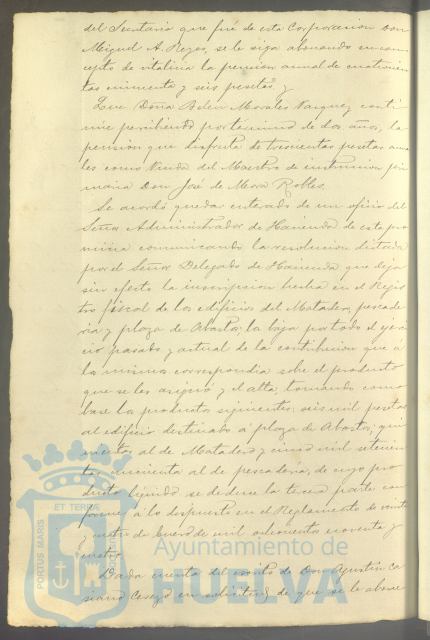 del Secretario que fué de esta Corporacion Don
Miguel A. Reyes, se le siga abonando en con
cepto de vitalicia la pension anual de cuatrocien
tas cincuenta y seis pesetas y
Que Doña Belen Morales Vazquez conti
núe percibiendo por término de dos años, la
pension que disfruta de trescientas pesetas anua
les como Viuda del Maestro de instruccion pri
maria Don José de Mora Robles.
Se acordó quedar enterado de un oficio del
Señor Administrador de Hacienda de esta pro
vincia comunicando la resolucion dictada
por el Señor Delegado de Hacienda que deja
sin efecto la inscripcion hecha en el Regis
tro fiscal de los edificios del Matadero, pescade
ria y plaza de Abastos; la baja por todo el ejerci
cio pasado y actual de la contribucion que a
la misma correspondia sobre el producto
que se les asignó y el alta, tomando como
base los productos siguientes: seis mil pesetas
al edificio destinado á plaza de Abastos; qui
nientas al de Matadero y cinco mil setecien
tas cincuenta al de pescaderia, de cuyo pro
ducto líquido se deduce la tercera parte con
forme á lo dispuesto en el Reglamento de veinte
y cuatro de Enero de mil ochocientos noventa y
cuatro.
Dada cuenta del escrito de Don Agustin Ce
siano Cerezo en solicitud de que se le abone
PORTUS MARIS ET TERRAE
Ayuntamiento de
HUELVA